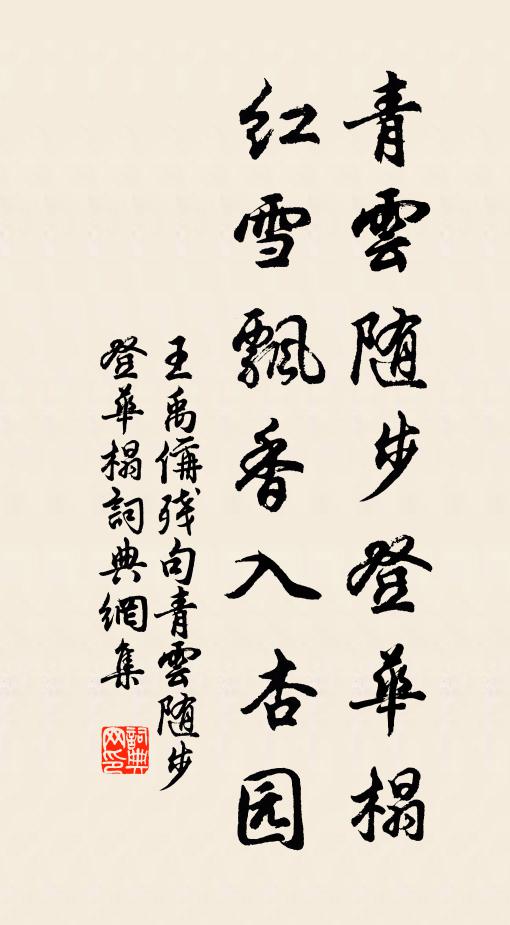 青雲随步登華榻
红雪飄香入杏园
王禹偁残句青雲随步
登華榻詞典網集
詞典网印